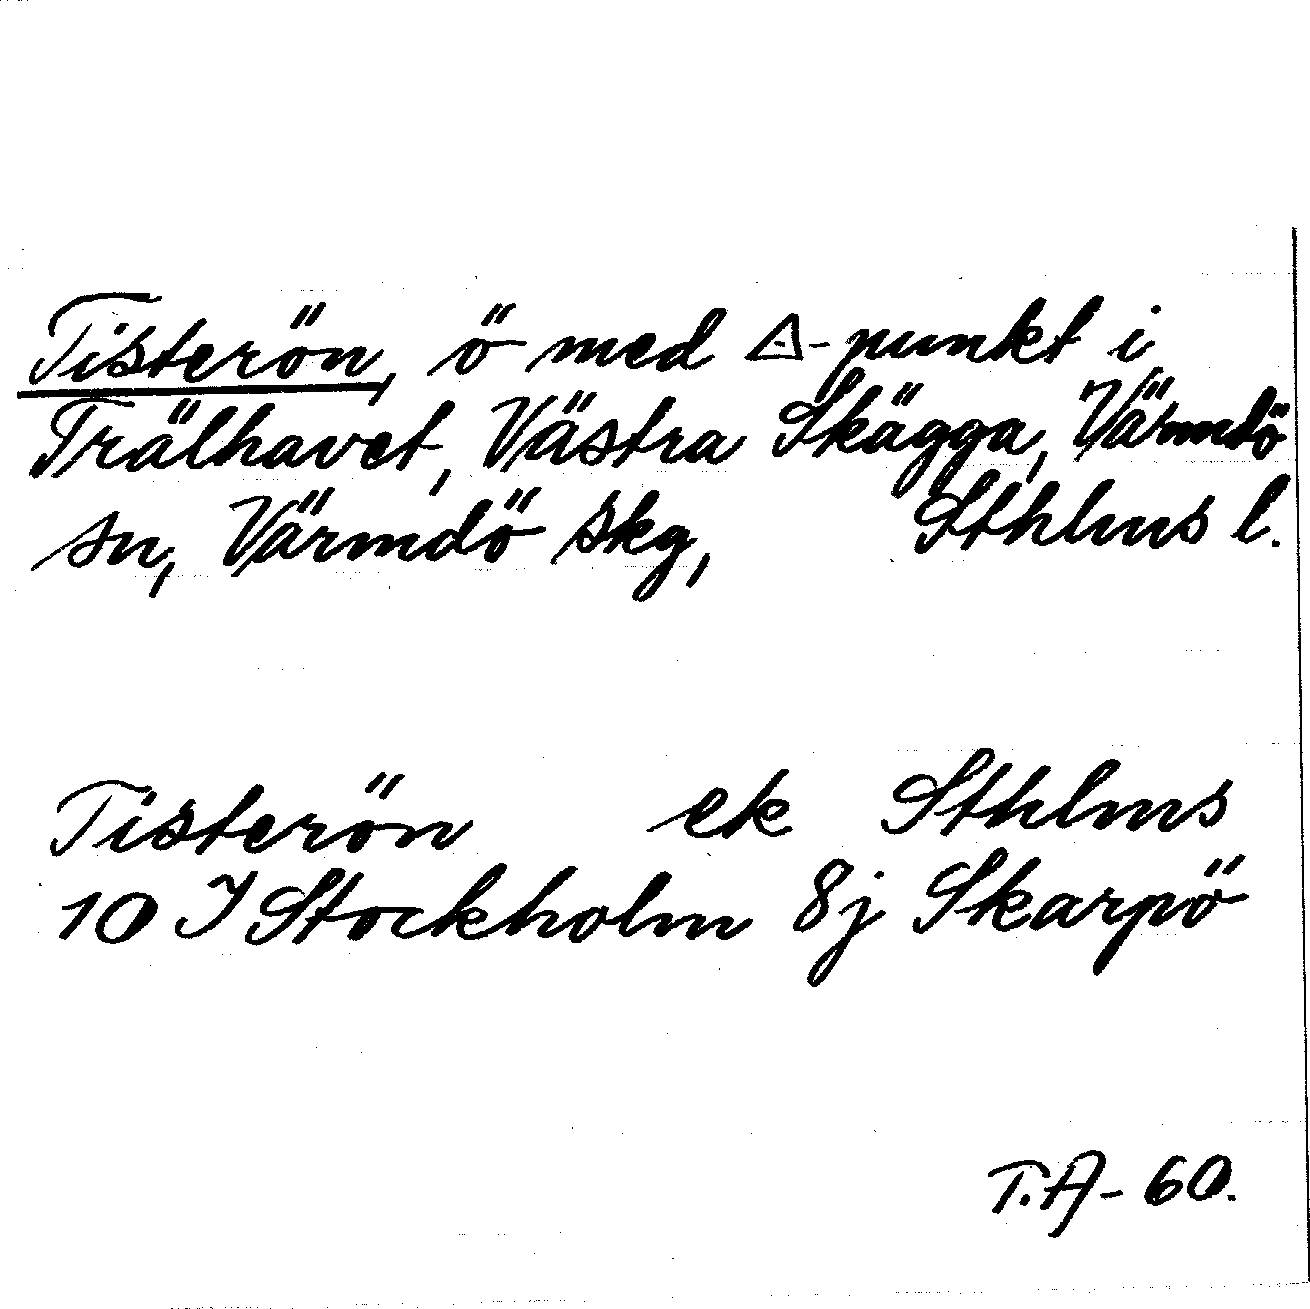 Tisterön, ö med △-punkt i
Trälhavet, Västra Skägga, Värmdö
sn, Värmdö skg, Sthlms l.
Tisterön ek Sthlms
10 I Stockholm 8j Skarpö
T.A-60.